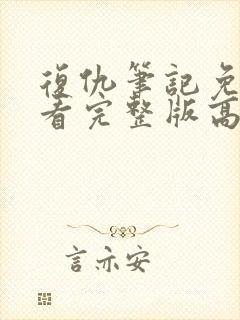 復仇筆記免
看完整版高
言亦安